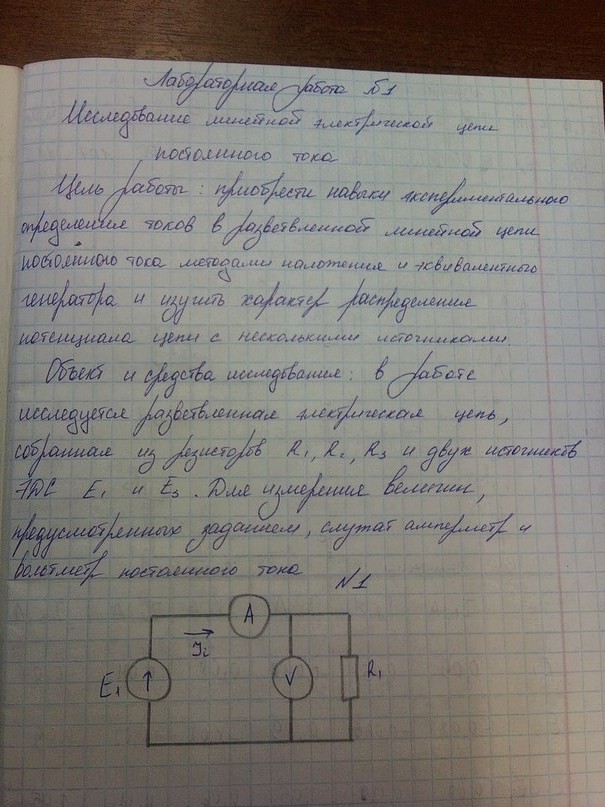 Лабораторная работа №1
Исследование линейной электрической цепи
постоянного тока
Цель работы: приобрести навыки экспериментального
определения токов в разветвленной линейной цепи
постоянного тока методами наложения и эквивалентного
генератора и изучить характер распределения
потенциала цепи с несколькими источниками.
Объект и средства исследования: в работе
исследуется разветвленная электрическая цепь,
собранная из резисторов R1, R2, R3 и двух источников
ЭДС E1 и E3. Для измерения величин,
предусмотренных заданием, служат амперметр и
вольтметр постоянного тока
N1
A
I2
E1
V
R1